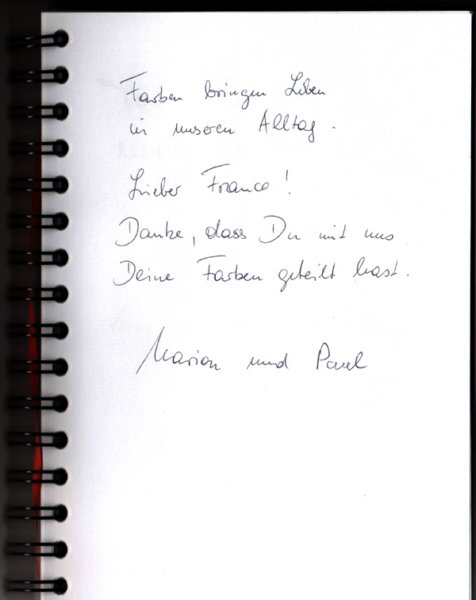 Farben bringen Leben
in unseren Alltag.
Lieber Franco!
Danke, dass Du mit uns
Deine Farben geteilt hast.
Marion und Paul